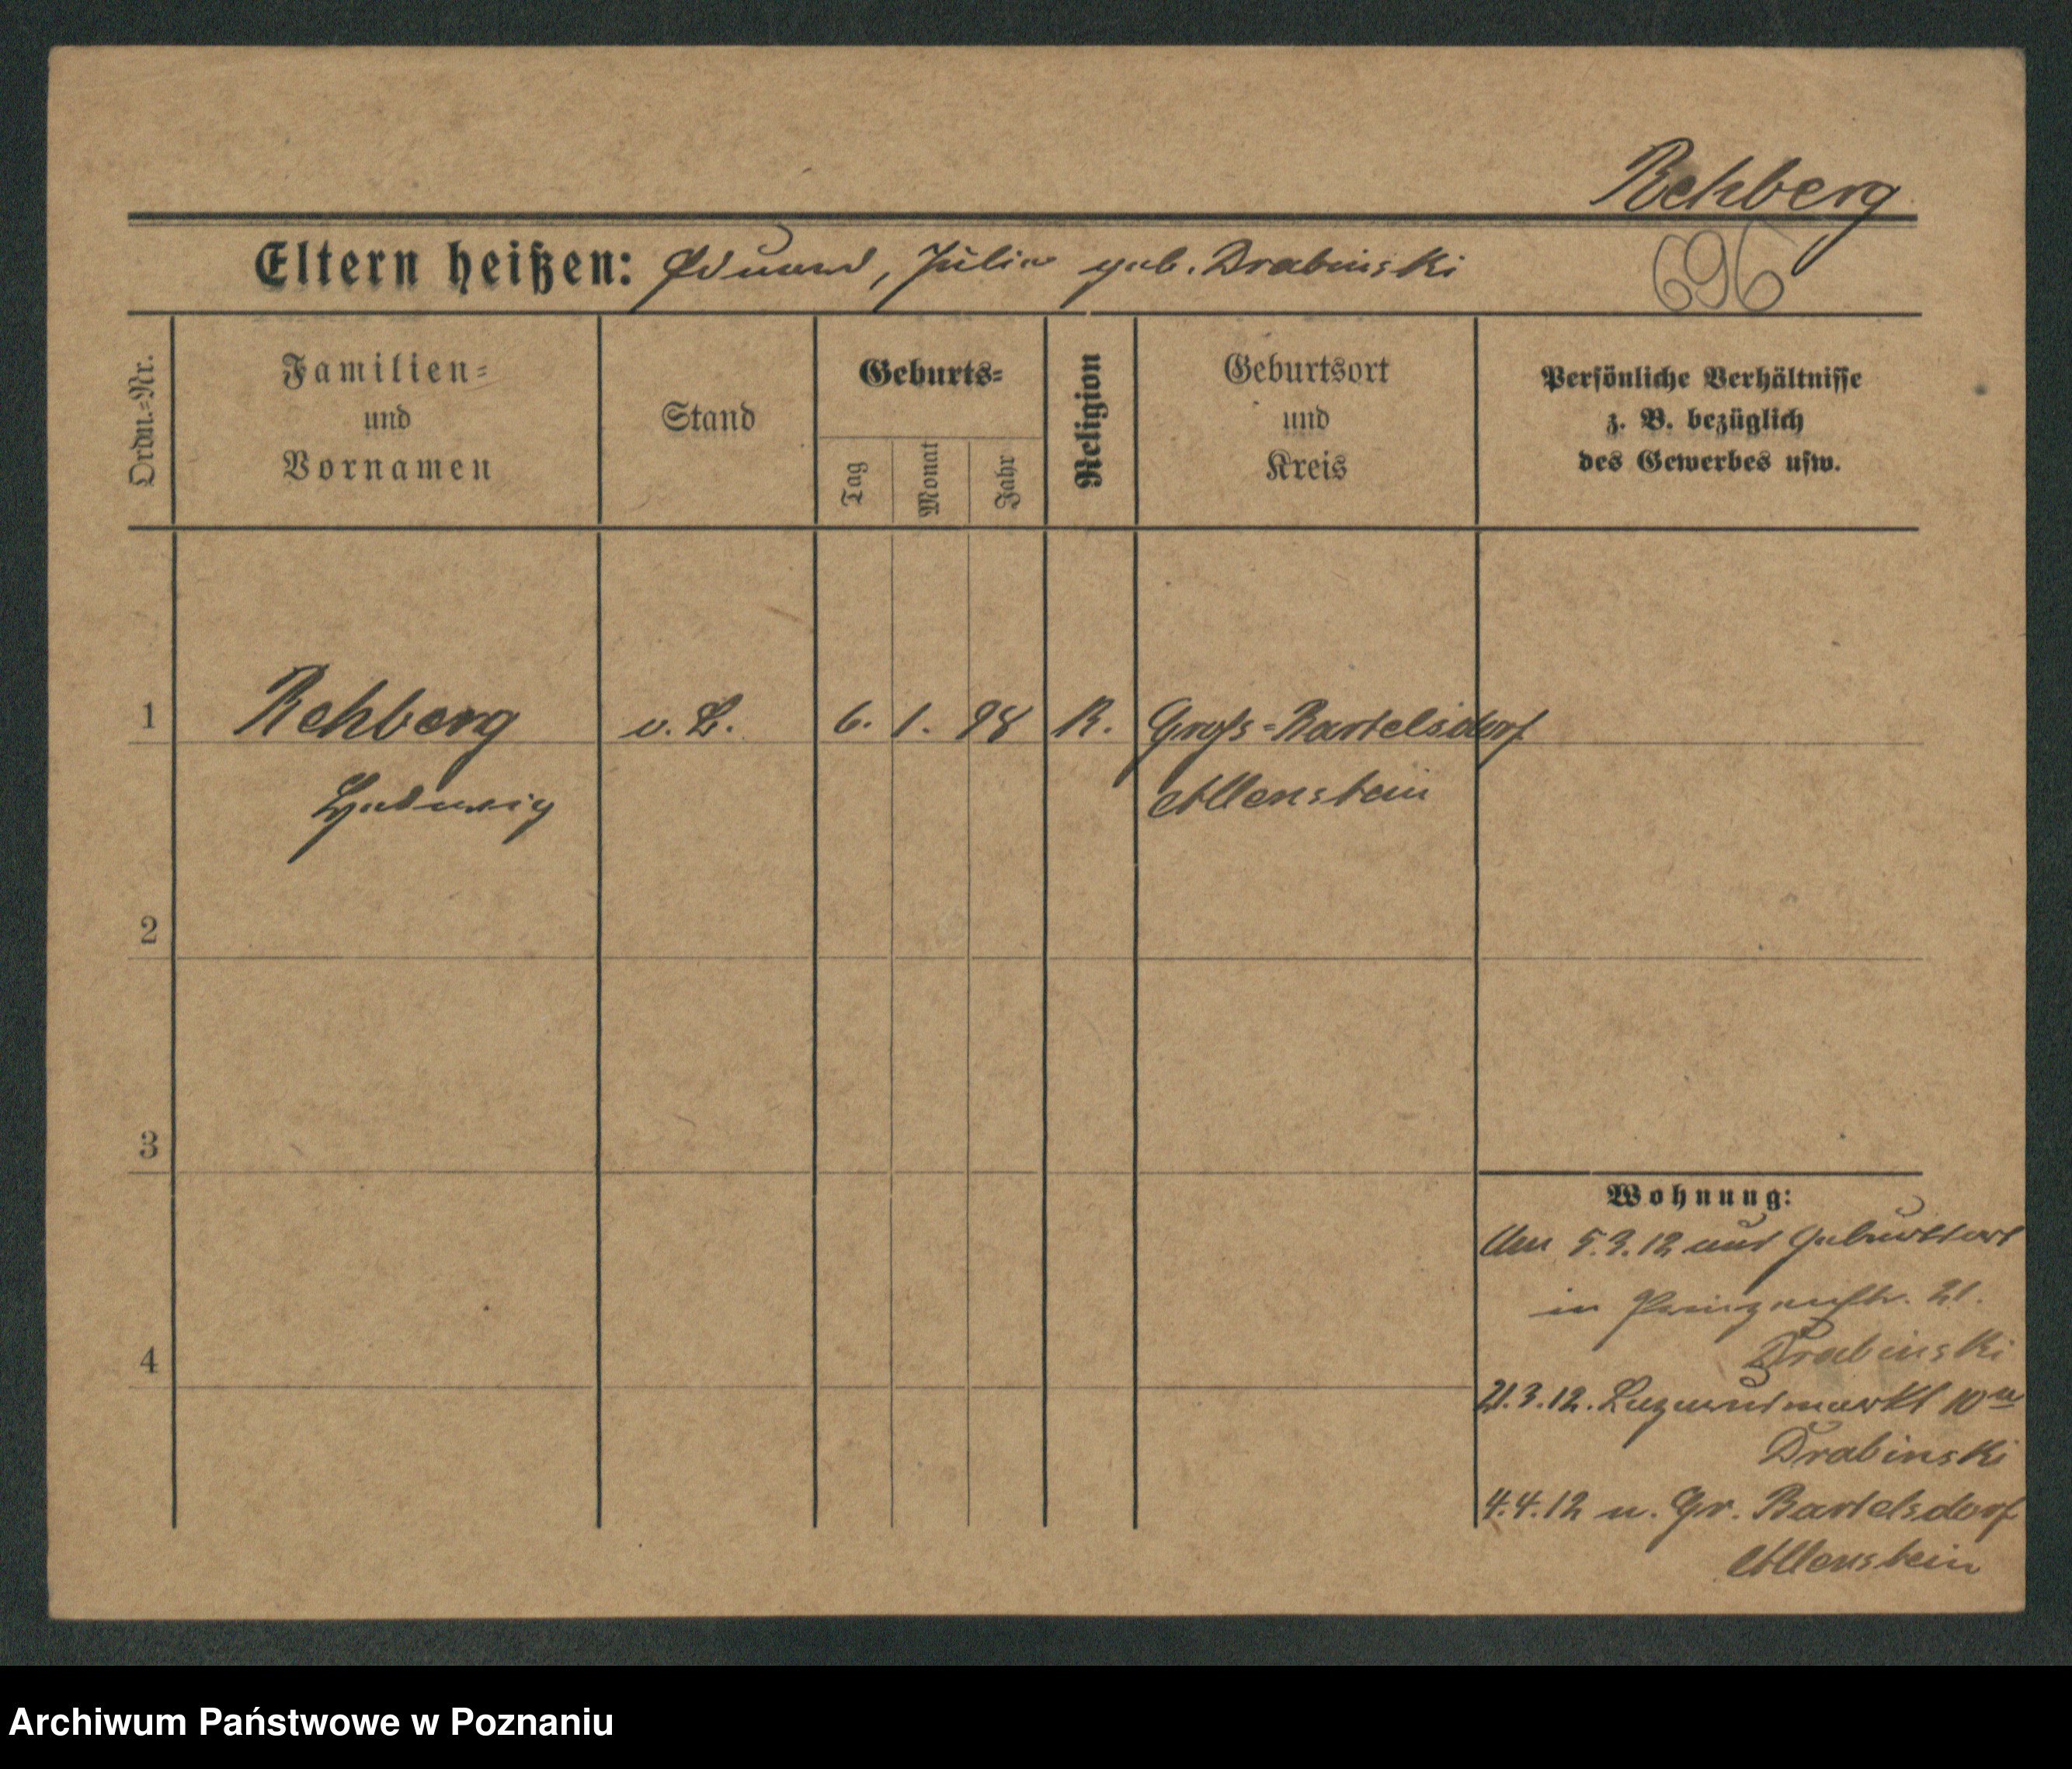 Rehberg
Eltern heißen: Eduard, Julie geb. Drabinski
696
Ordn.=Nr.
Familien=
und
Vornamen
Stand
Geburts=
Tag
Monat
Jahr
Religion
Geburtsort
und
Kreis
Persönliche Verhältnisse
z. B. bezüglich
des Gewerbes usw.
1
Rehberg
o. B.
6. 1. 98
K.
Groß=Bartelsdorf
Ludwig
Allenstein
2
3
4
Wohnung:
Am 5.3.12 aus Geburtsort
in Prinzenstr. 21.
Drabinski
21.3.12.
10
Drabinski
4.4.12 n. Gr. Bartelsdorf
Allenstein
Archiwum Państwowe w Poznaniu